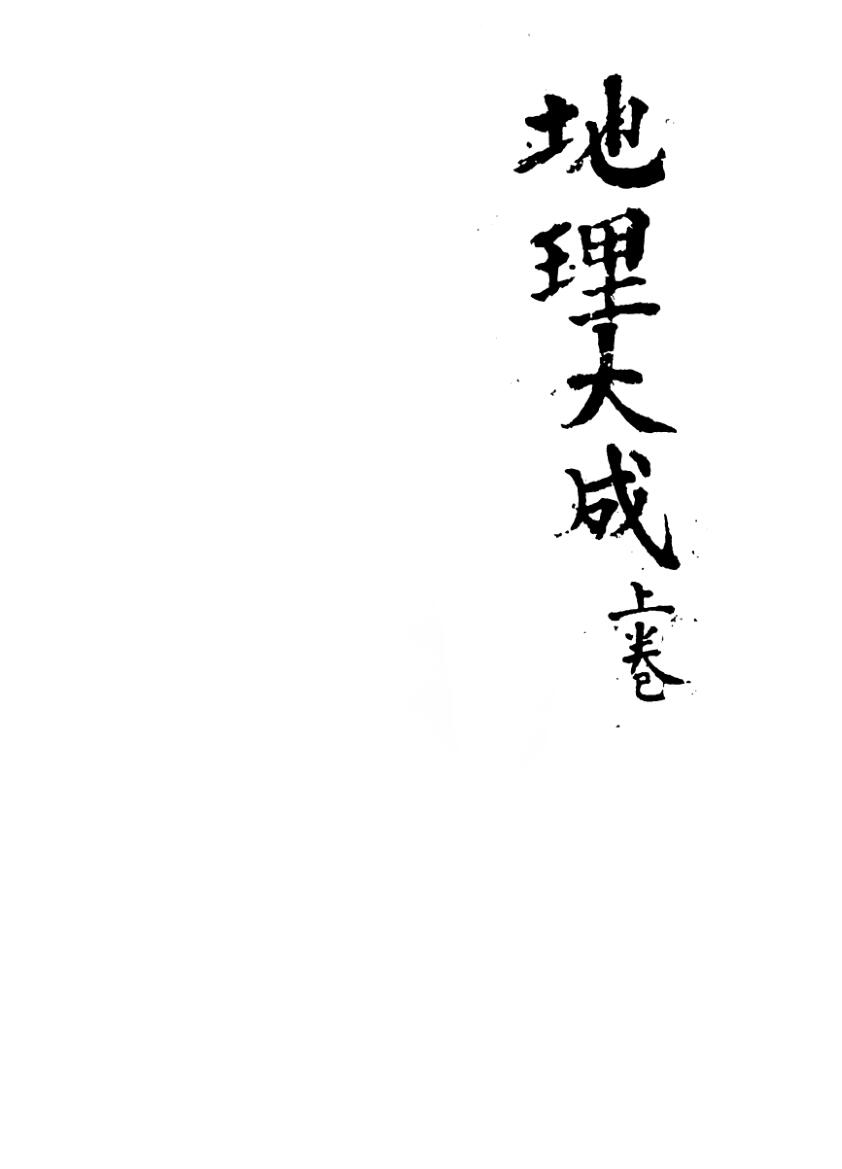 地理大成上卷